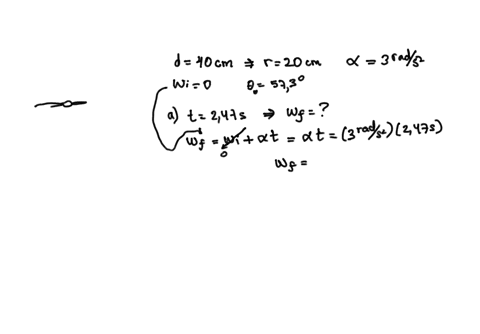 d = 40cm ⇒ r = 20cm α = 3 rad/s²
wi = 0 θ₀ = 57,3°
a) t = 2,47s ⇒ wf = ?
wf = wi + αt = αt = (3 rad/s²)(2,47s)
0
wf =